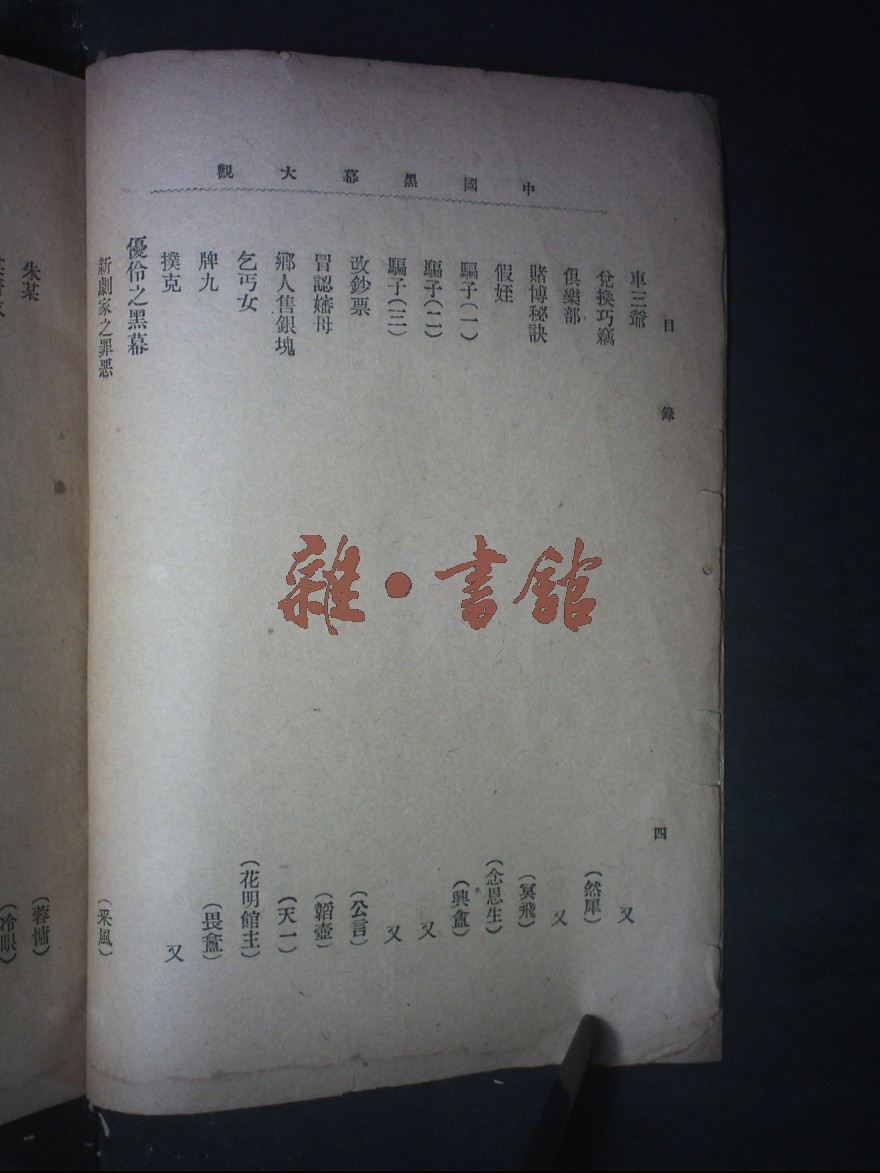 中國黑幕大觀
目錄 四
車三爺 又
兌換巧竊 (然犀)
俱樂部 又
賭博秘訣 (冥飛)
假姪 (念恩生)
騙子(一) (興盦)
騙子(二) 又
騙子(三) 又
改鈔票 (公言)
冒認嬸母 (韜壺)
鄉人售銀塊 (天一)
乞丐女 (花明館主)
牌九 (畏盦)
撲克 又
優伶之黑幕
新劇家之罪惡 (采風)
朱某 (蓉傭)
(冷眼)
雜·書館